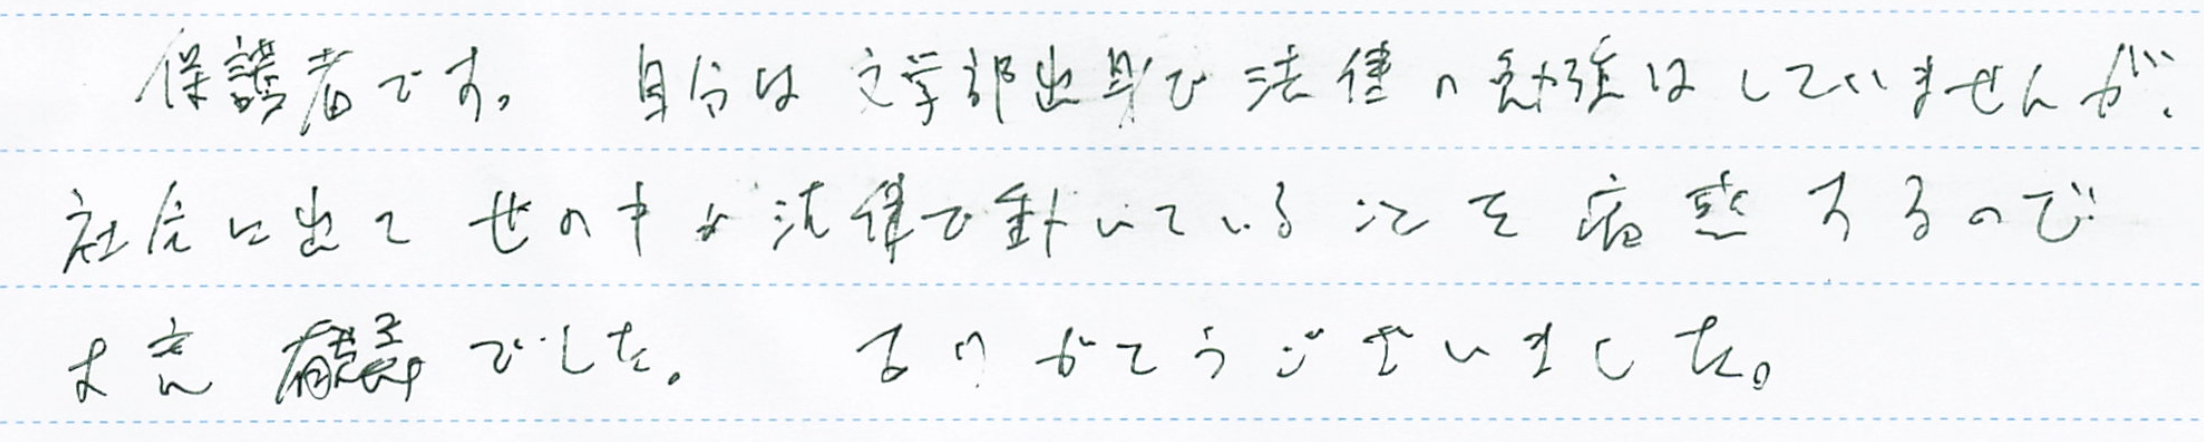 保護者です。 自分は文学部出身で法律の勉強はしていませんが、
社会に出て世の中が法律で動いていることを痛感するので
大変有意義でした。 ありがとうございました。